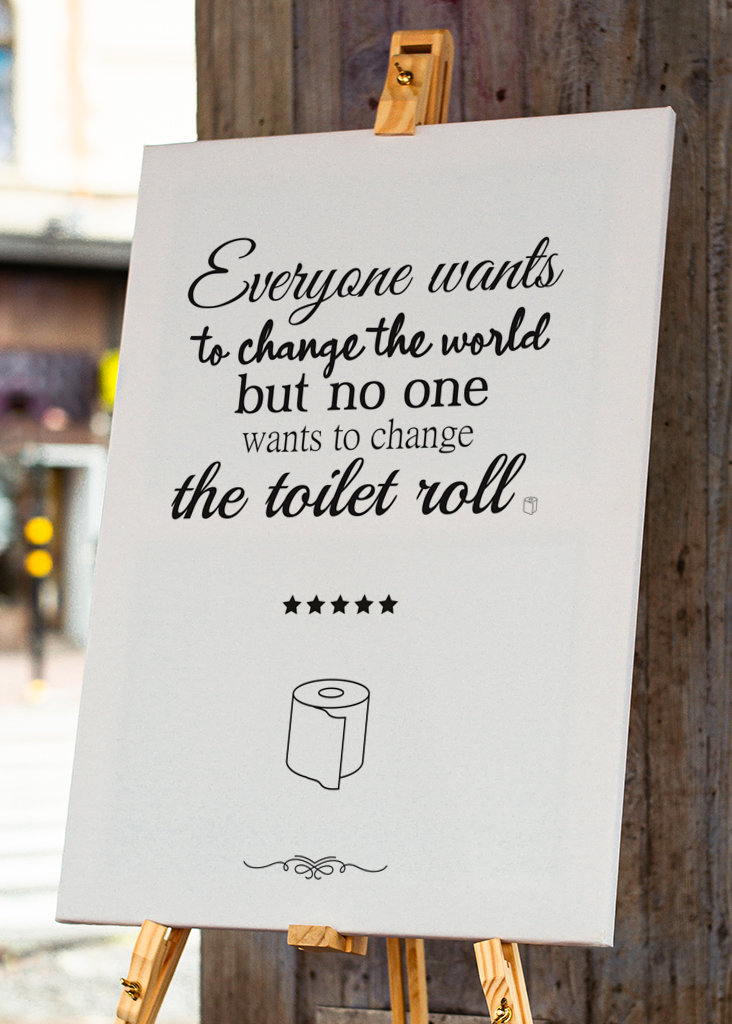 Everyone wants
to change the world
but no one
wants to change
the toilet roll